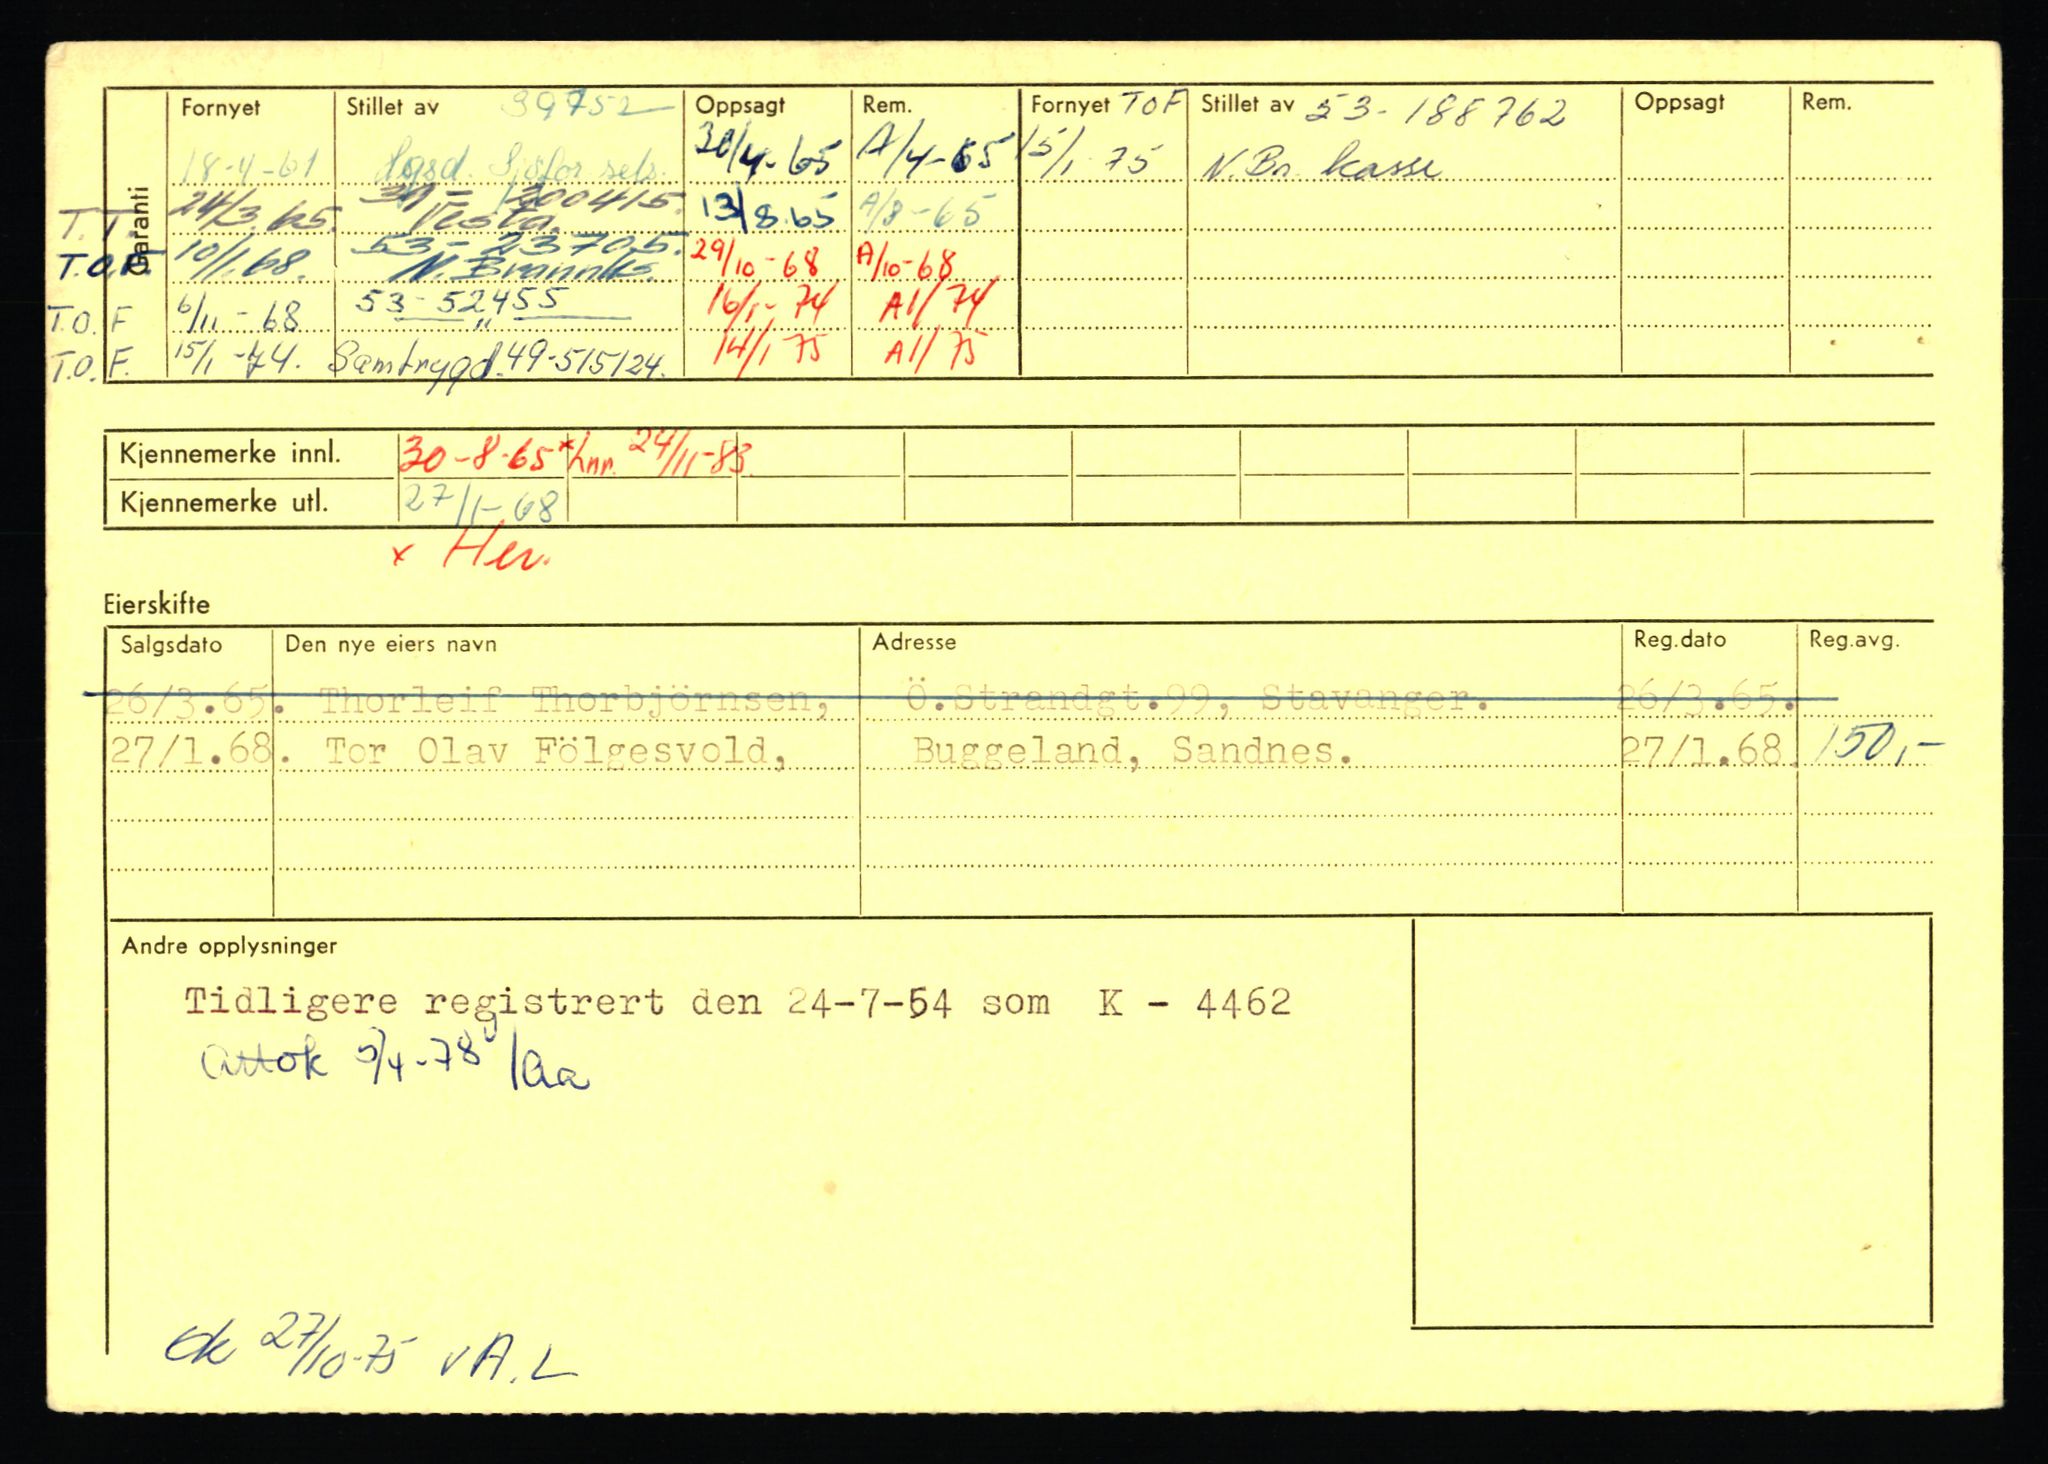 Garanti
Fornyet Stillet av 39752 Oppsagt Rem. Fornyet TOF Stillet av 53-188762 Oppsagt Rem.
18-4-61 Hgsd. Sjøfor.sels. 30/4-65 A/4-65 15/1-75 N.Br. kasse
T.T. 24/3.65. Vesta. 13/8.65 A/8-65
53-23705.
T.O.F. 10/1.68. N. Brannks. 29/10-68 A/10-68
T.O.F 6/11-68 53-52455 16/1-74 A1/74
"
T.O.F. 15/1-74. Samtrygd. 49-515124. 14/1 75 A1/75
Kjennemerke innl. 30-8-65 x hnr. 24/11-83
Kjennemerke utl. 27/1-68
x Her.
Eierskifte
Salgsdato Den nye eiers navn Adresse Reg.dato Reg.avg.
26/3.65. Thorleif Thorbjörnsen, Ö.Strandgt.99, Stavanger. 26/3.65.
27/1.68. Tor Olav Fölgesvold, Buggeland, Sandnes. 27/1.68. 150,-
Andre opplysninger
Tidligere registrert den 24-7-54 som K - 4462
Attok 5/4-78 /Aa
ok 27/10-75 v A.L